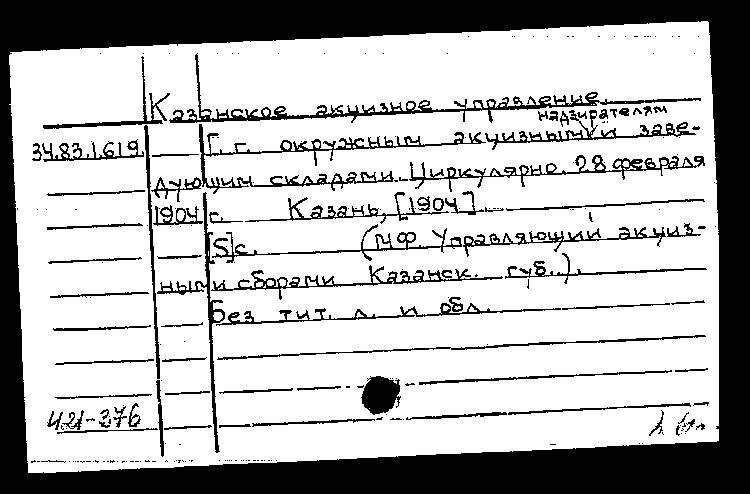 Казанское акцизное управление.
надзирателям
34.83.1.619. Г.г. окружным акцизным и заве-
дующим складами. Циркулярно. 28 февраля
1904 г. Казань, [1904].
[5]с. (М.Ф. Управляющий акциз-
ными сборами Казанск. губ.).
Без тит. л. и обл.
421-376